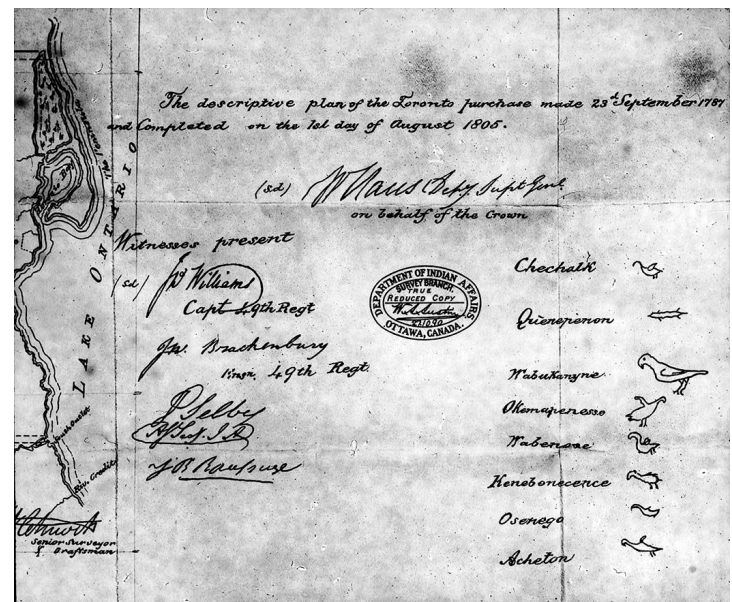 The descriptive plan of the Toronto purchase made 23d September 1787
and Completed on the 1st day of August 1805.
(sd) W Claus Depy Supt Genl
on behalf of the Crown
Witnesses present
(sd) Js Williams
Capt 49th Regt
Jn. Brackenbury
Ensn. 49th Regt.
P. Selby
J B Rousseau
DEPARTMENT OF INDIAN AFFAIRS
SURVEY BRANCH.
TRUE
REDUCED COPY
OTTAWA, CANADA.
Chechalk
Queneperon
Wabukanyne
Okemapenesse
Wabenose
Kenebonecence
Osenego
Acheton
LAKE ONTARIO
Riv. Credit
Senior Surveyor
& Draftsman